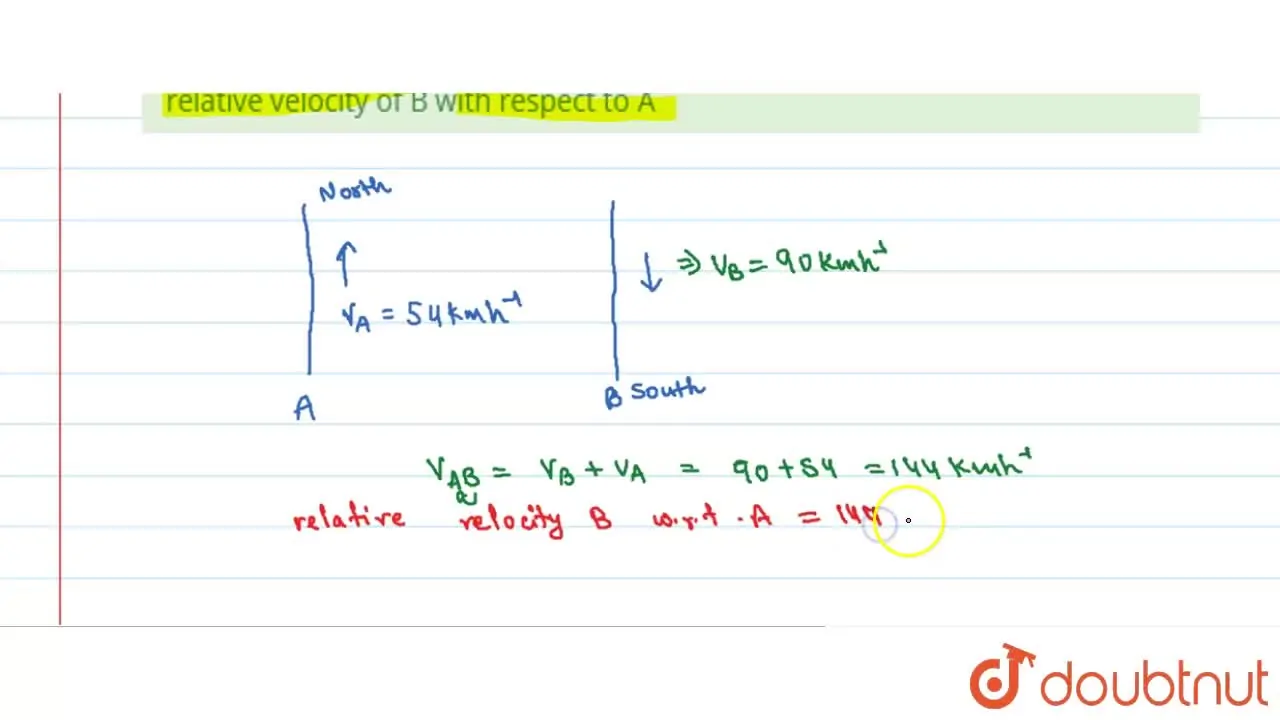 relative velocity of B with respect to A
North
⇒ VB = 90 Kmh⁻¹
VA = 54 Kmh⁻¹
A
B South
VAB = VB + VA = 90 + 54 = 144 Kmh⁻¹
relative velocity B w.r.t. A = 144
doubtnut